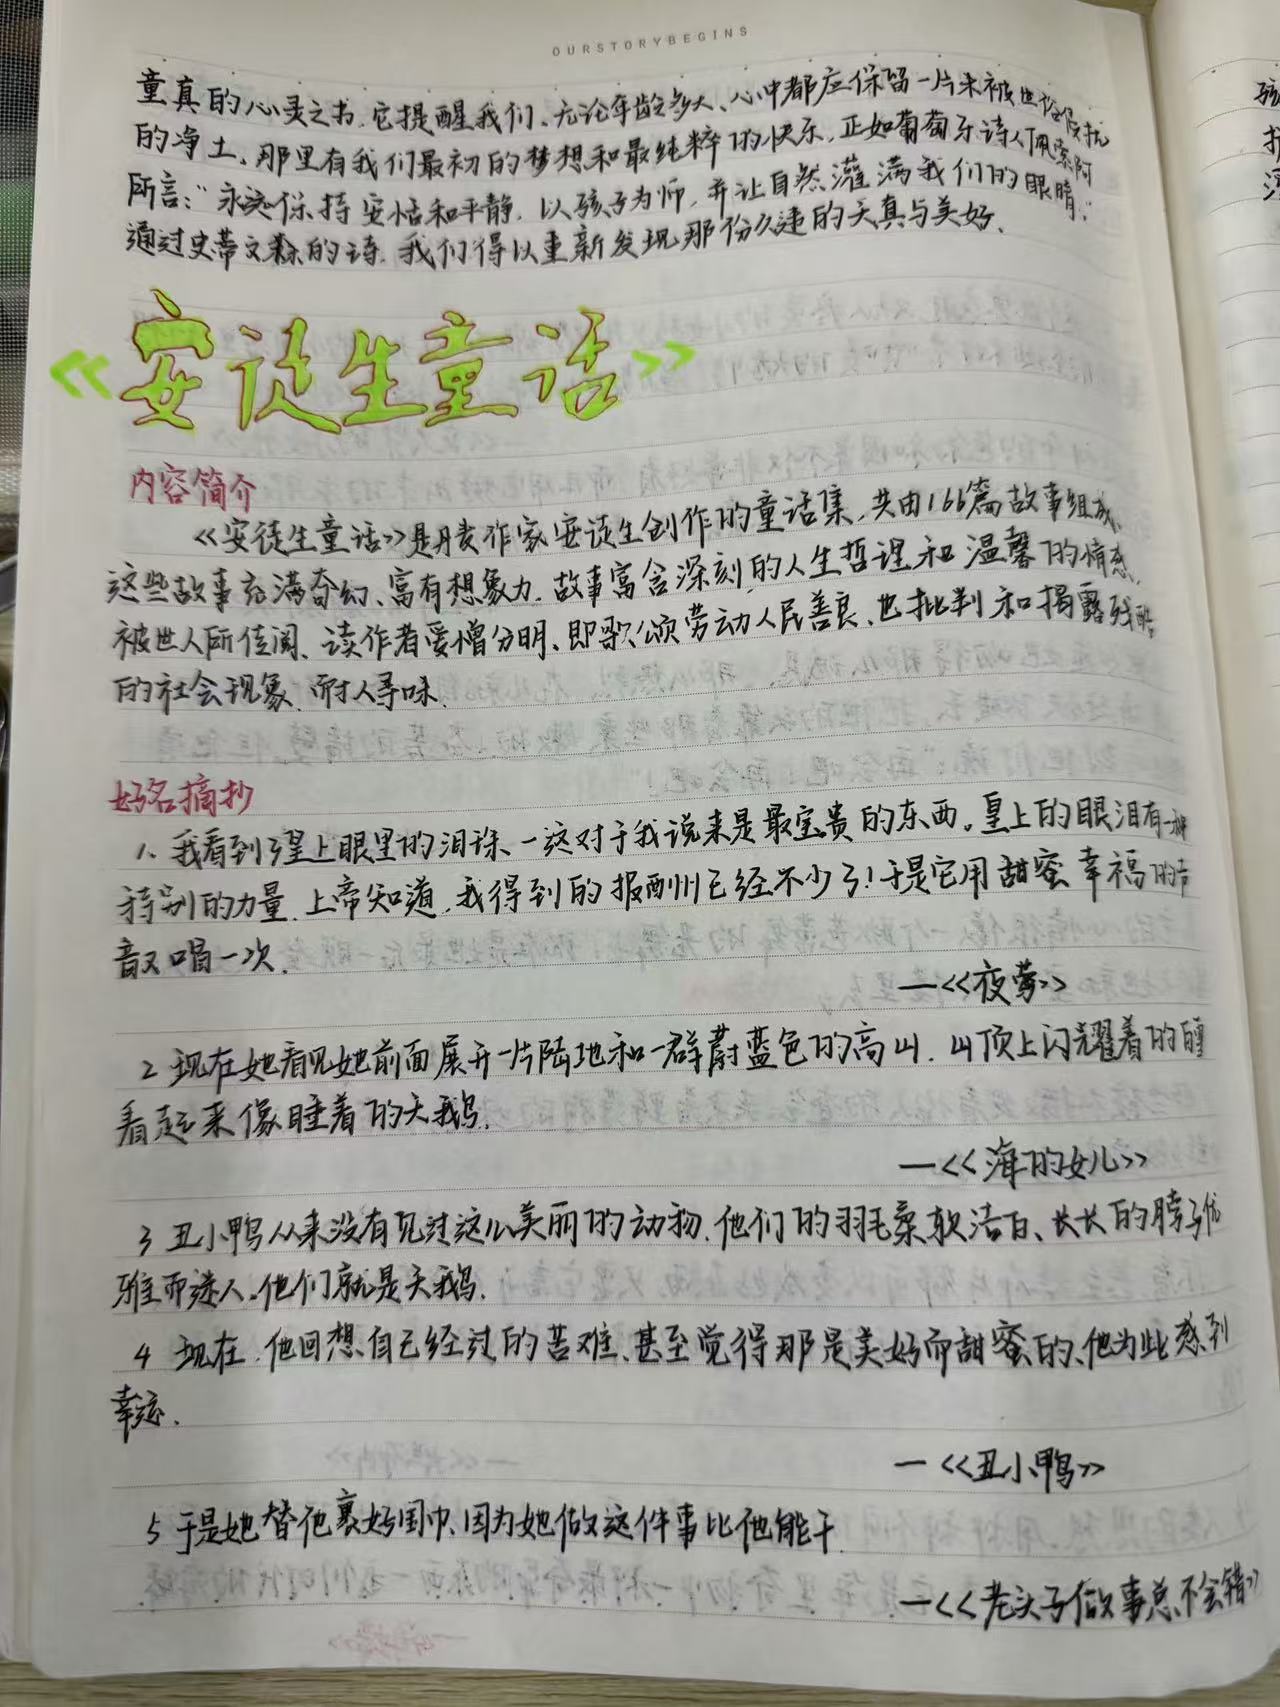 OURSTORYBEGINS
童真的心灵之书.它提醒我们、无论年龄多大、心中都应保留一片未被世俗侵扰
的净土、那里有我们最初的梦想和最纯粹的快乐,正如葡萄牙诗人佩索阿
所言:“永远保持安恬和平静,以孩子为师,并让自然灌满我们的眼睛,”
通过史蒂文森的诗.我们得以重新发现那份久违的天真与美好、
《安徒生童话》
内容简介
《安徒生童话》是丹麦作家安徒生创作的童话集,共由166篇故事组成、
这些故事充满奇幻、富有想象力.故事富含深刻的人生哲理和温馨的情感、
被世人所传阅、读作者爱憎分明、即歌颂劳动人民善良、也批判和揭露残酷
的社会现象.耐人寻味.
好名摘抄
1、我看到了皇上眼里的泪珠、一这对于我说来是最宝贵的东西。皇上的眼泪有一种
特别的力量.上帝知道,我得到的报酬州已经不少了!于是它用甜蜜幸福的声
音又唱一次.
—《夜莺》
2 现在她看见她前面展开一片陆地和一群蔚蓝色的高山.山顶上闪耀着的白雪
看起来像睡着的天鹅.
—《海的女儿》
3 丑小鸭从来没有见过这么美丽的动物.他们的羽毛柔软洁白、长长的脖子优
雅而迷人.他们就是天鹅.
4 现在.他回想自己经过的苦难、甚至觉得那是美好而甜蜜的、他为此感到
幸运.
—《丑小鸭》
5 于是她替他裹好围巾、因为她做这件事比他能干.
—《老头子做事总不会错》